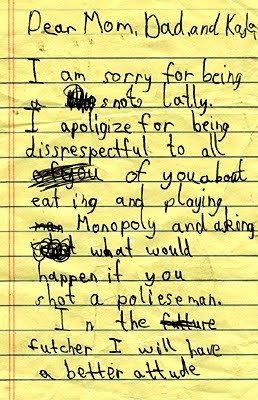 Dear Mom, Dad, and Kayla
I am sorry for being
a snot latly.
I apoligize for being
disrespectful to all
of you of you about
eating and playing
man Monopoly and asking
what would
happen if you
shot a polieseman.
In the futture
futcher I will have
a better attude